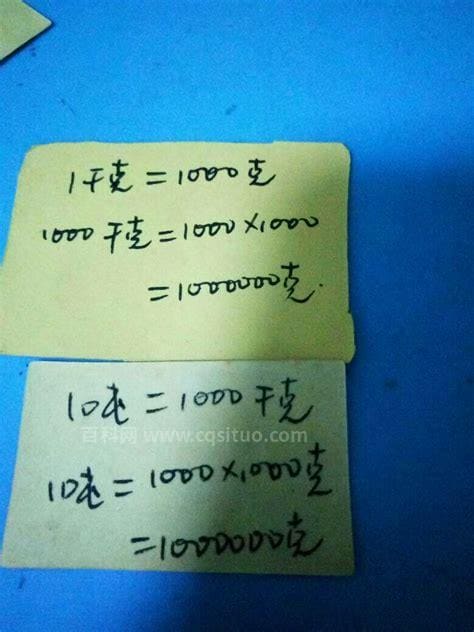 1千克=1000克
1000千克=1000×1000
=1000000克.
10吨=1000千克
百科网 www.cqsituo.com
10吨=1000×1000克
=1000000克